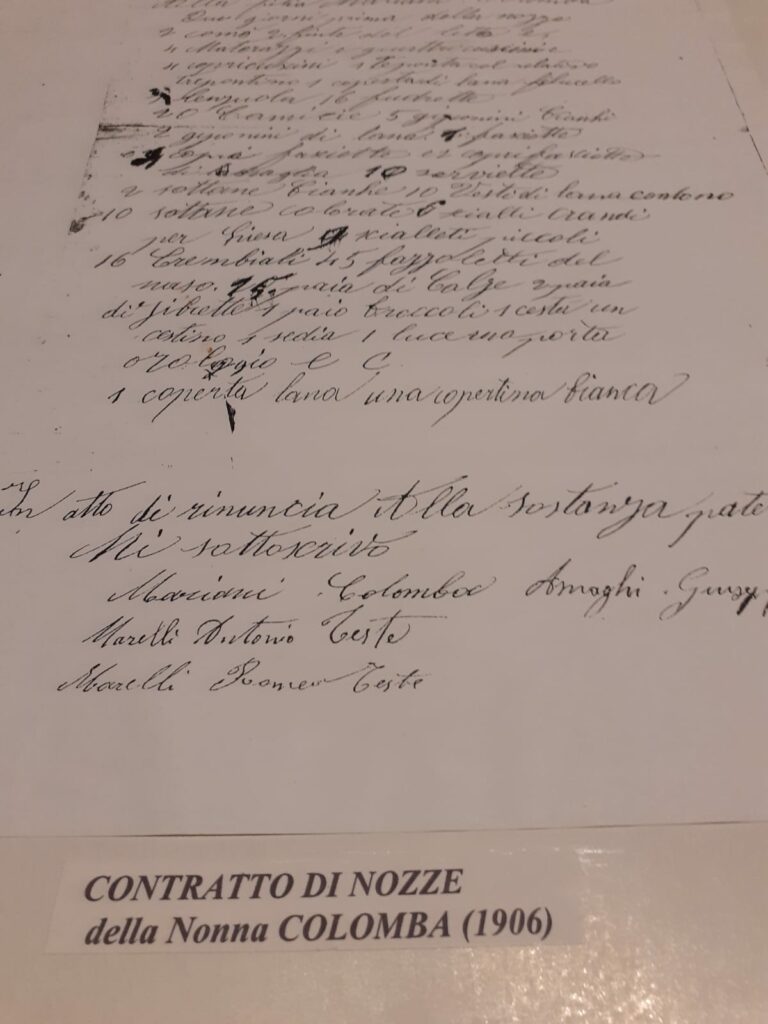 Alla figlia Mariani Colomba
Due giorni prima delle nozze
2 comò 2 fusti del leto
4 Materazzi e quattro cuscini e
4 copricuscini 1 col relativo
trepontino 1 coperta di lana filucello
Lenzuola 16 fudrette
20 Camicie 5 giponini Bianhi
2 giponini di lana 1 fasietto
fasietto e 2 copri fasietto
di 10 serviette
2 sottane Bianhe 10 Vesti di lana cotono
10 sottane colorate 6 xialli Grandi
per Giesa 9 xialleti piccoli
16 Grembiali 45 fazzoletti del
naso. 15 paia di Calze 2 paia
di Sibrette 1 paio Broccoli 1 cesta un
cestino 1 sedia 1 lucerna porta
orologgio e C
1 coperta lana una copertina bianca
In atto di rinuncia Alla sostanza pate
Mi sottoscrivo
Mariani Colomba Arnaghi Giusep
Marelli Antonio Teste
Marelli Romeo Teste
CONTRATTO DI NOZZE
della Nonna COLOMBA (1906)